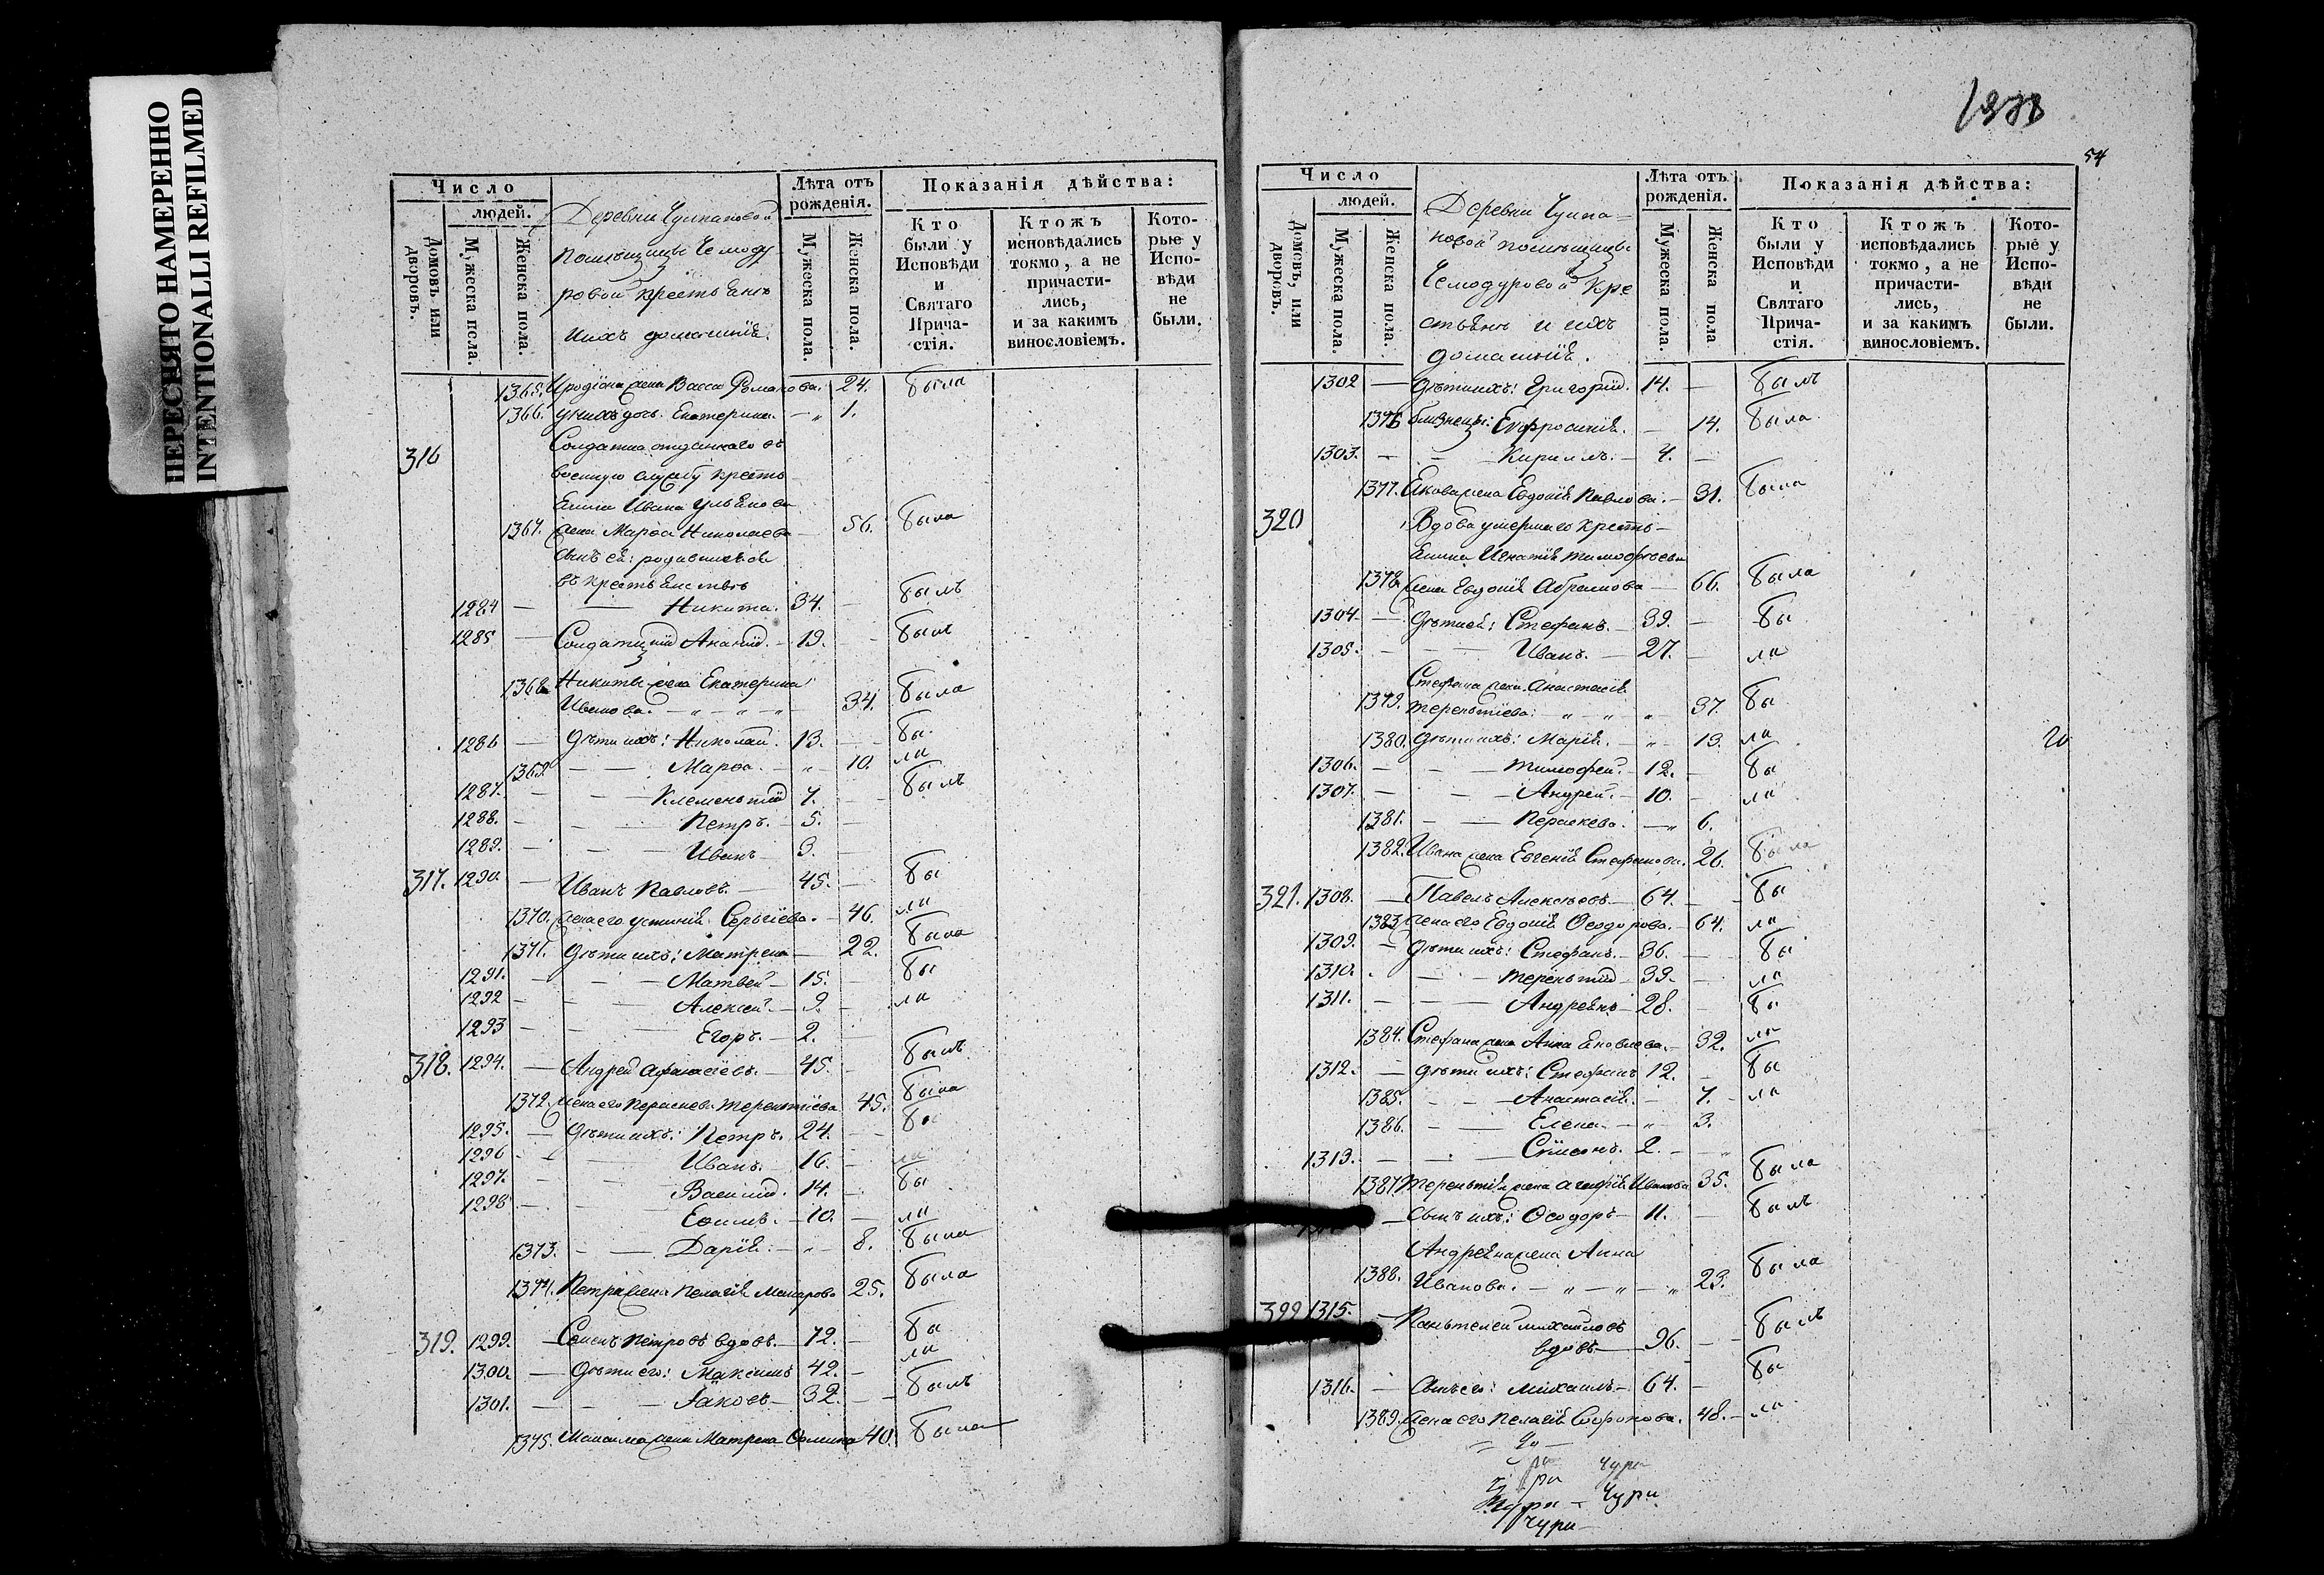 ПЕРЕСНЯТО НАМЕРЕННО
INTENTIONALLI REFILMED
Число
людей.
Домовъ или дворовъ.
Мужеска пола.
Женска пола.
Деревни
помѣщицы Чемоду-
ровой крестьянъ
ихъ домашніе.
Лѣта отъ рожденія.
Мужеска пола.
Женска пола.
Показанія дѣйства:
Кто были у Исповѣди и Святаго Причастія.
Ктожъ исповѣдались токмо, а не причастились, и за какимъ винословіемъ.
Которые у Исповѣди не были.
1365. Иродіона жена Васса Романова. 24. была
1366. у нихъ дочь Екатерина. — " 1.
316 Солдатка отданнаго въ
военную службу кресть-
янина Ивана Ульянова
1367. жена Марѳа Николаева — 56. была
сынъ ея: родившійся
въ крестьянствѣ
1284 — — Никита. 34. — былъ
1285 — Солдатскій Ананій. — 19. — былъ
1368 Никиты жена Екатерина
Иванова. — " — " — " — 34. была
1286 — Дѣти ихъ: Николай. 13. — бы
1369. — — Марѳа. — " — 10. ла
1287. — — Клементій 7. — былъ
1288. — — Петръ. — 5. —
1289. — — Иванъ — 3. —
317. 1290. — Иванъ Павловъ. — 45. — бы
1370. жена его Устинія Сергіева. — 46. ла
1371. Дѣти ихъ: Матрена — 22. была
1291. — — Матвей — 15. бы
1292 — — Алексей. — 9. — ла
1293 — — Егоръ. — 2. —
318. 1294. — Андрей Афанасіевъ. — 45. — былъ
1372. жена его Параскева Терентіева 45. была
1295. — Дѣти ихъ: Петръ. 24. — бы
1296 — — Иванъ. — 16. — ла
1297. — — Василій. 14. — бы
1298 — — Ефимъ. — 10. — ла
1373. — — Дарія. — " — 8. была
1374. Петра жена Пелагія Макарова 25. была
319. 1299. — Семенъ Петровъ вдовъ. — 72. — бы
1300. — Дѣти его: Максимъ 42. — ла
1301. — — Іаковъ — 32. — былъ
1375. Максима жена Матрена Фомина 40. была
54
Число
людей.
Домовъ, или дворовъ.
Мужеска пола.
Женска пола.
Деревни
новой помѣщицы
Чемодуровой кре-
стьянъ и ихъ
домашніе.
Лѣта отъ рожденія.
Мужеска пола.
Женска пола
Показанія дѣйства:
Кто были у Исповѣди и Святаго Причастія.
Ктожъ исповѣдались токмо, а не причастились, и за какимъ винословіемъ.
Которые у Исповѣди не были.
1302 — Дѣти ихъ: Григорій. 14. — былъ
1376 близнецы: Евфросинія. — 14. была
1303. — — Кириллъ. — 4. —
1377. Якова жена Евдокія Павлова. — 31. была
320 Вдова умершаго кресть-
янина Игнатія Тимофѣева
1378. жена Евдокія Абрамова — 66. была
1304. — Дѣти ея: Стефанъ. — 39. — бы
1305. — — Иванъ. — 27. — ла
Стефана жена Анастасія
1379. Терентіева. — " — " " 37. бы
1380. Дѣти ихъ: Марія. — " — 13. ла
20
1306. — — Тимофей. — 12. — бы
1307. — — Андрей. — 10. — ла
1381. — — Параскева. — " 6.
1382. Ивана жена Евгенія Стефанова. 26. была
321. 1308. — Павелъ Алексѣевъ — 64. — бы
1383. жена его Евдокія Ѳеодорова. — 64. ла
1309. — Дѣти ихъ: Стефанъ. — 36. — бы
1310. — — Терентій — 33. — ла
1311. — — Андреянъ — 28. — бы
1384. Стефана жена Анна Яковлева. — 32. ла
1312. — Дѣти ихъ: Стефанъ 12. — бы
1385. — — Анастасія. — 7. — ла
1386. — — Елена. — " — 3.
1313. — — Сімеонъ. 2. — "
1387 Терентія жена Агафія Иванова 35. была
— Сынъ ихъ: Ѳеодоръ — 11. — былъ
Андреяна жена Анна
1388. Иванова. — " — " — " 23. была
322 1315. — Пантелей Михайловъ
вдовъ — 96. — былъ
1316. — Сынъ его: Михаилъ — 64. — бы
1389. жена его Пелагія Софронова. 48. — ла
чури
чури — чури
чури —